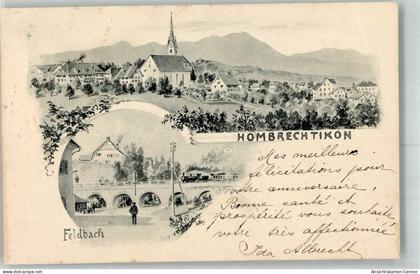 HOMBRECHTIKON
Mes meilleurs
félicitations pour
votre anniversaire,
Bonne santé et
prospérité vous souhaite,
votre très affectionnée
Ida Albrecht
Feldbach